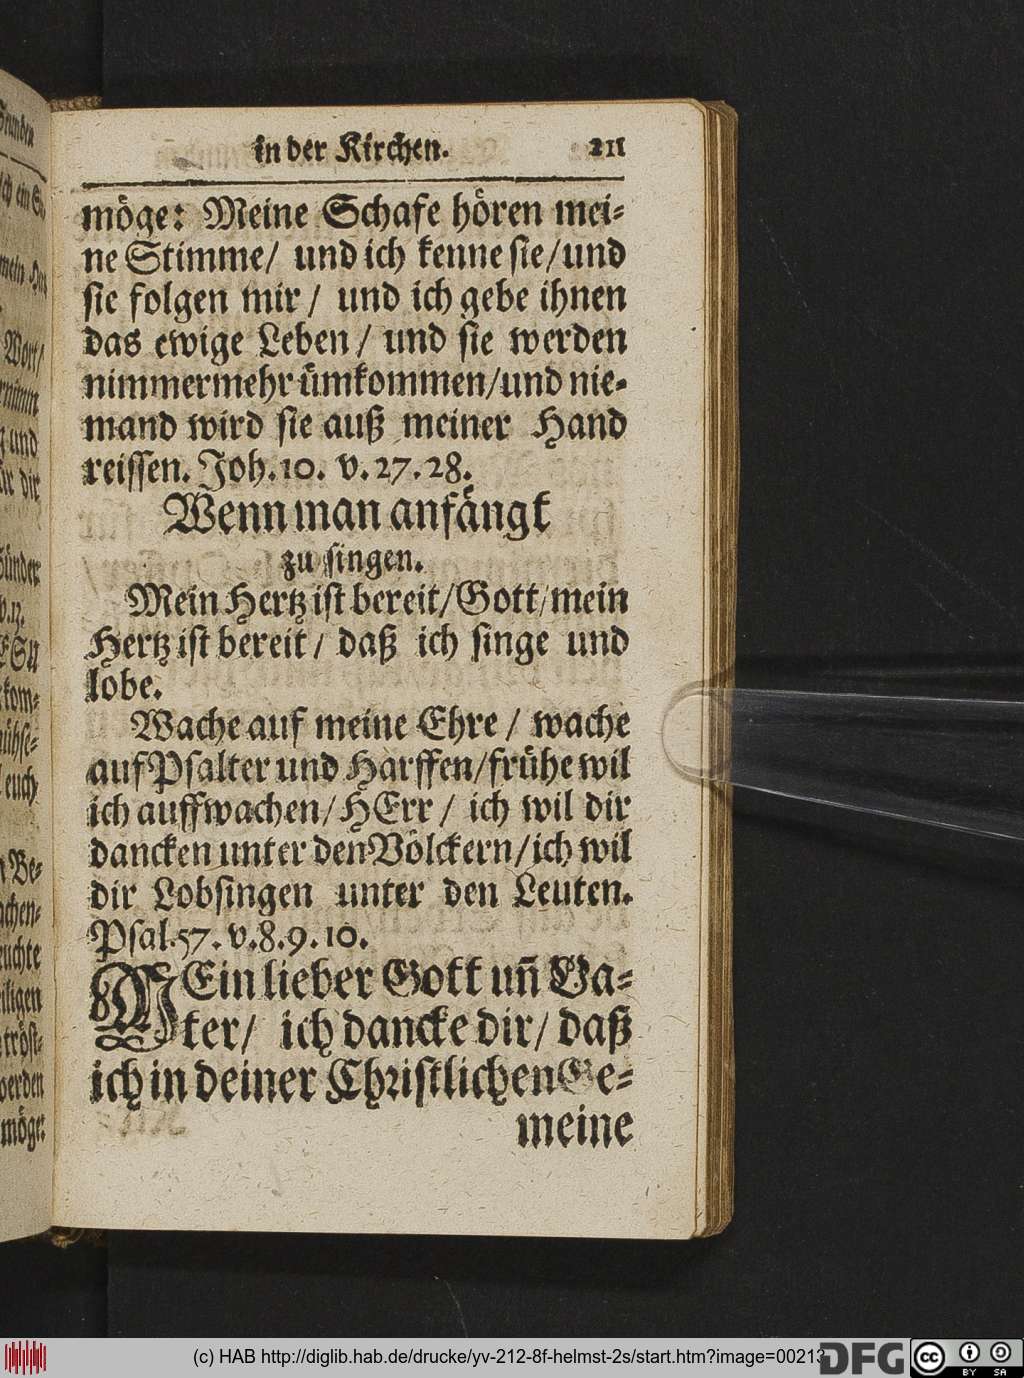 in der Kirchen. 211
möge: Meine Schafe hören mei-
ne Stimme/ und ich kenne sie/und
sie folgen mir/ und ich gebe ihnen
das ewige Leben/ und sie werden
nimmermehr ümkommen/und nie-
mand wird sie auß meiner Hand
reissen. Joh. 10. v. 27. 28.
Wenn man anfängt
zu singen.
Mein Hertz ist bereit/Gott/mein
Hertz ist bereit/ daß ich singe und
lobe.
Wache auf meine Ehre/ wache
auf Psalter und Harffen/frühe wil
ich auffwachen/HErr/ ich wil dir
dancken unter den Völckern/ich wil
dir Lobsingen unter den Leuten.
Psal. 57. v. 8. 9. 10.
MEin lieber Gott uñ Va-
ter/ ich dancke dir/ daß
ich in deiner Christlichen Ge-
meine
(c) HAB http://diglib.hab.de/drucke/yv-212-8f-helmst-2s/start.htm?image=00213
DFG
cc BY SA